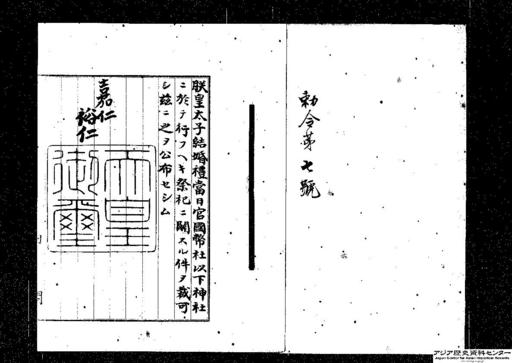 勅令第七號
朕皇太子結婚禮當日官國幣社以下神社
ニ於テ行フヘキ祭祀ニ關スル件ヲ裁可
シ茲ニ之ヲ公布セシム
嘉仁
裕仁
天皇
御璽
アジア歴史資料センター
Japan Center for Asian Historical Records